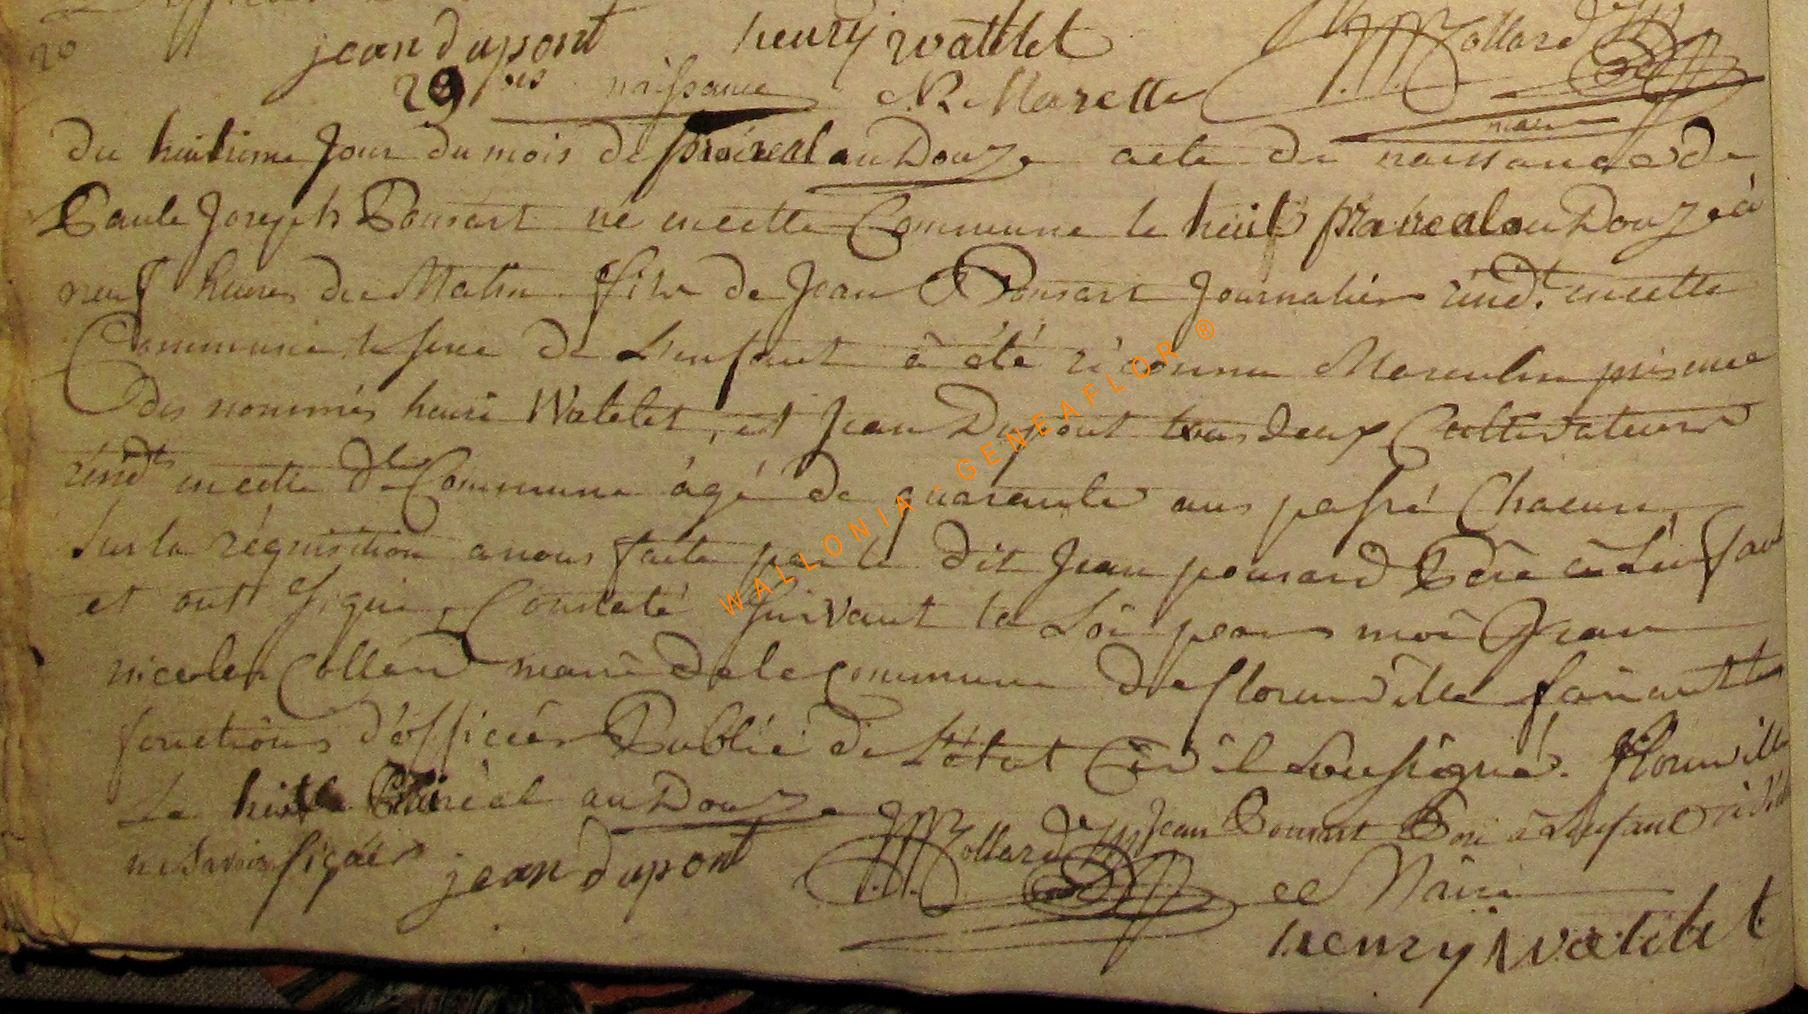 20
jean dupont henry watelet JN Collard
29 naissance N Marelle
maire
du huitieme Jour du mois de prairéal an Douze acte de naissance de
Paule Joseph Ponsart né en cette Commune le huit prairéal an Douze à
neuf heures du Matin fils de Jean Ponsart Journalier résidt en cette
Commune le sexe de L'enfant à été réconnu Masculin présence
des nommés henri Watelet, et Jean Dupont tous deux Cultivateurs
résidts en cette de Commune ágé de quarante ans passé Chacun,
Sur la réquisition a nous faite par le dit Jean ponsard Pére à L'enfant
et ont Signé, Constaté Suivant la Loi par moi Jean
nicolas Collard maire de la Commune de florenville faisant les
fonctions d'officier Public de L'état Civil Soussigné. florenville
Le huit Prairéal an Douze JN Collard Jean Ponsart Pere à L'enfant
ne Savoir signer jean dupont Maire
henry watelet
WALLONIA - GENEAFLOR ®